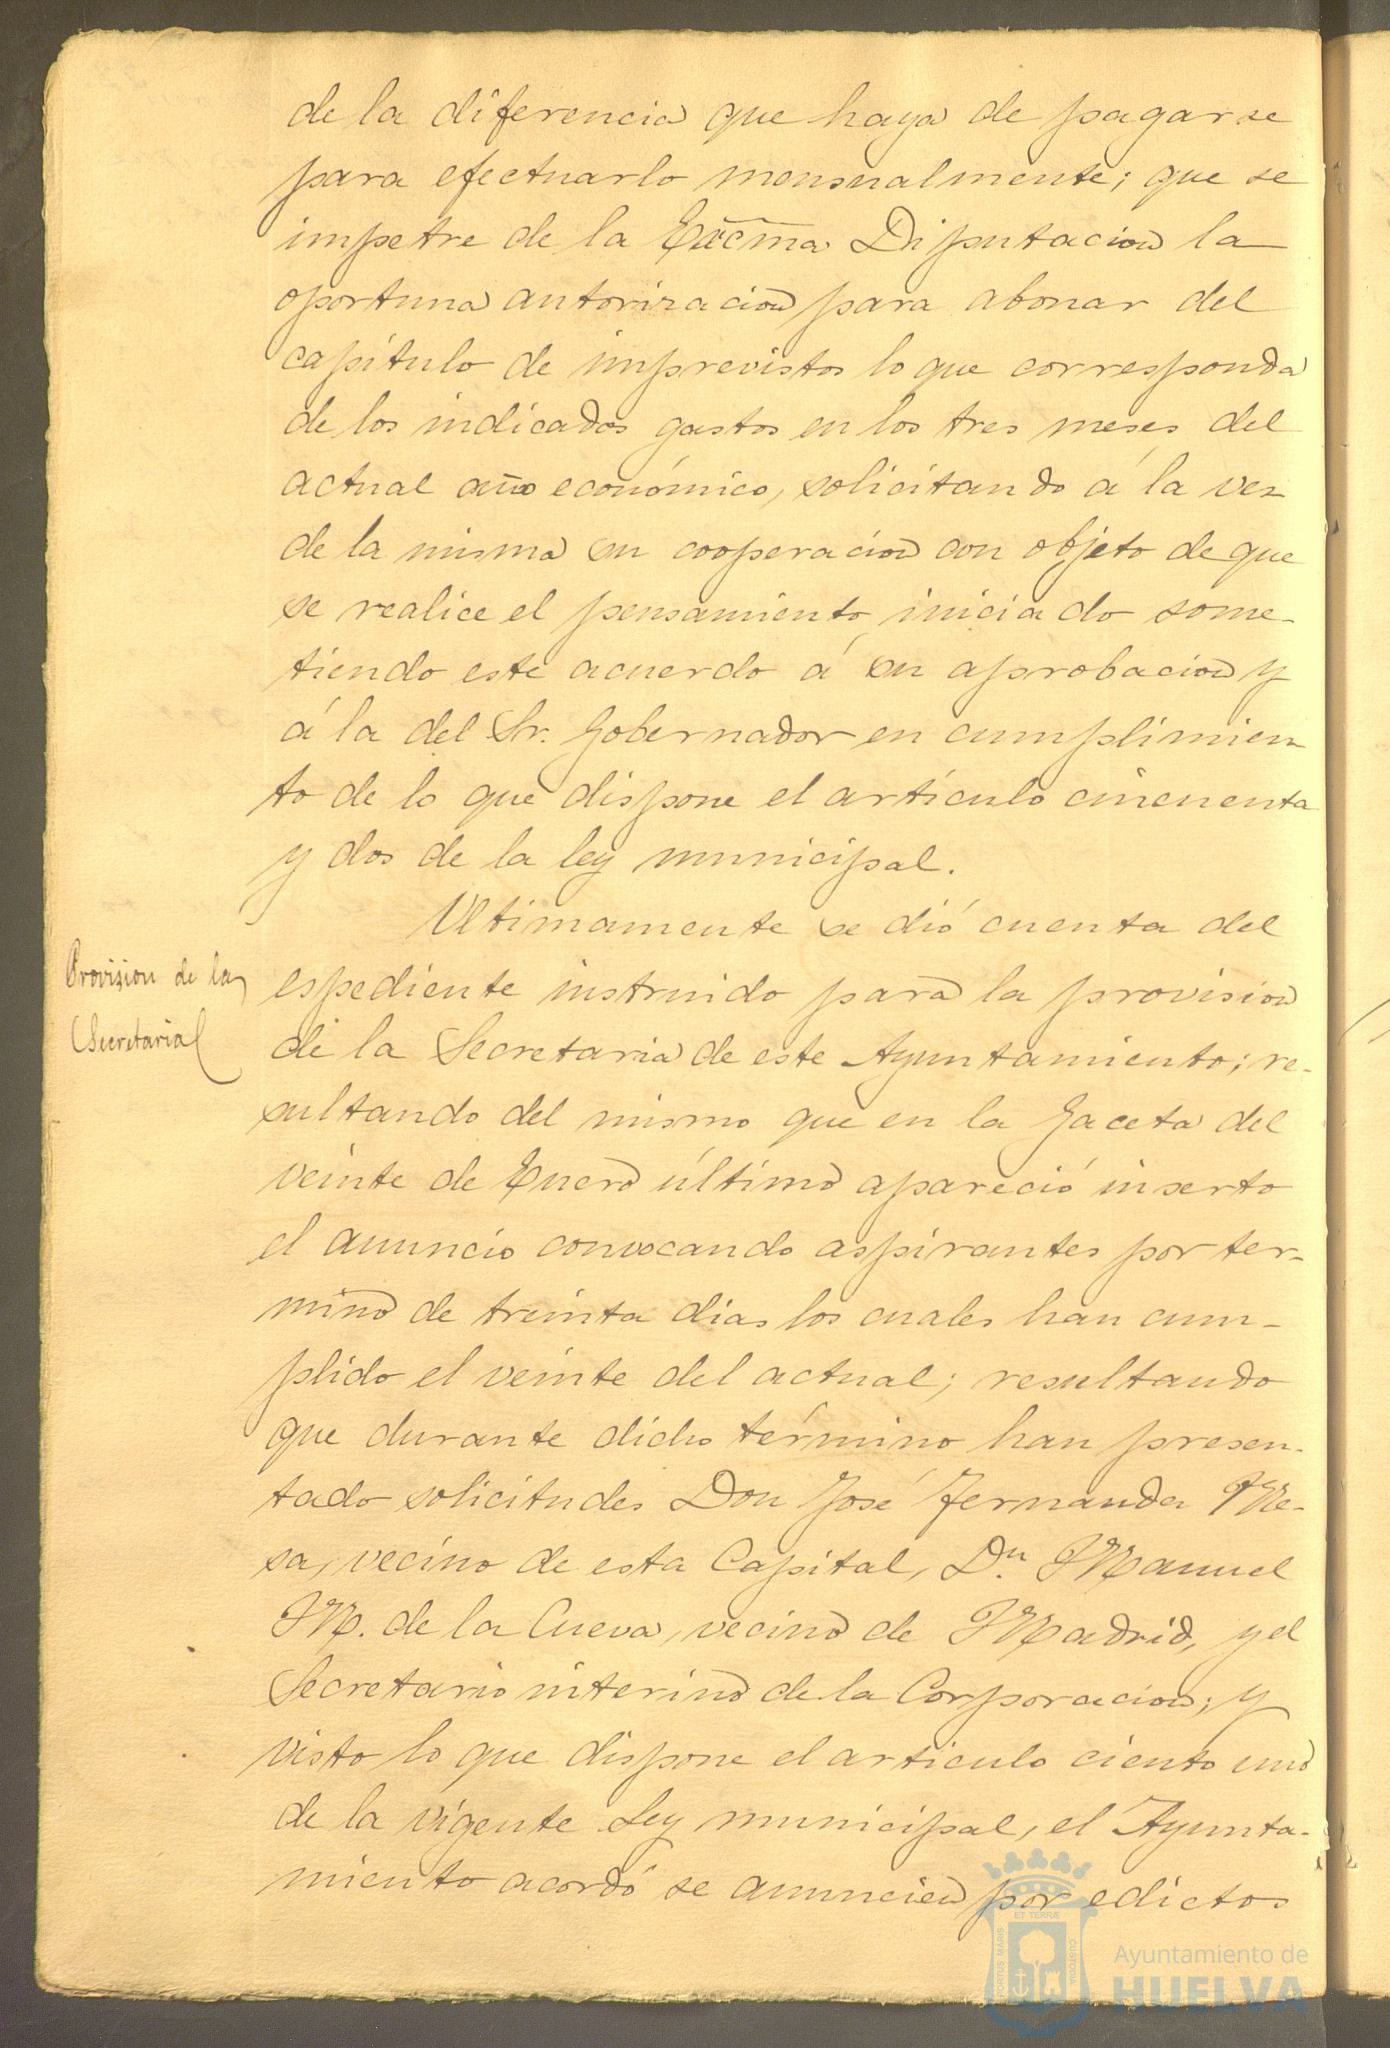 de la diferencia que haya de pagarse
para efectuarlo mensualmente; que se
impetre de la Excma Diputacion la
oportuna autorizacion para abonar del
capítulo de imprevistos lo que corresponda
de los indicados gastos en los tres meses del
actual año económico, solicitando á la vez
de la misma su cooperacion con objeto de que
se realice el pensamiento iniciado some-
tiendo este acuerdo á su aprobacion y
á la del Sr. Gobernador en cumplimien
to de lo que dispone el artículo cincuenta
y dos de la ley municipal.
Ultimamente se dió cuenta del
Provision de la
Secretaria
espediente instruido para la provision
de la Secretaria de este Ayuntamiento; re-
sultando del mismo que en la Gaceta del
veinte de Enero último apareció inserto
el anuncio convocando aspirantes por ter-
mino de treinta dias los cuales han cum-
plido el veinte del actual; resultando
que durante dicho término han presen-
tado solicitudes Don José Fernandez Me-
sa, vecino de esta Capital, Dn. Manuel
M. de la Cueva, vecino de Madrid, y el
Secretario interino de la Corporacion; y
visto lo que dispone el articulo ciento uno
de la vigente Ley municipal, el Ayunta-
miento acordó se anuncien por edictos
PORTUS MARIS
ET TERRÆ
CUSTODIA
Ayuntamiento de
HUELVA